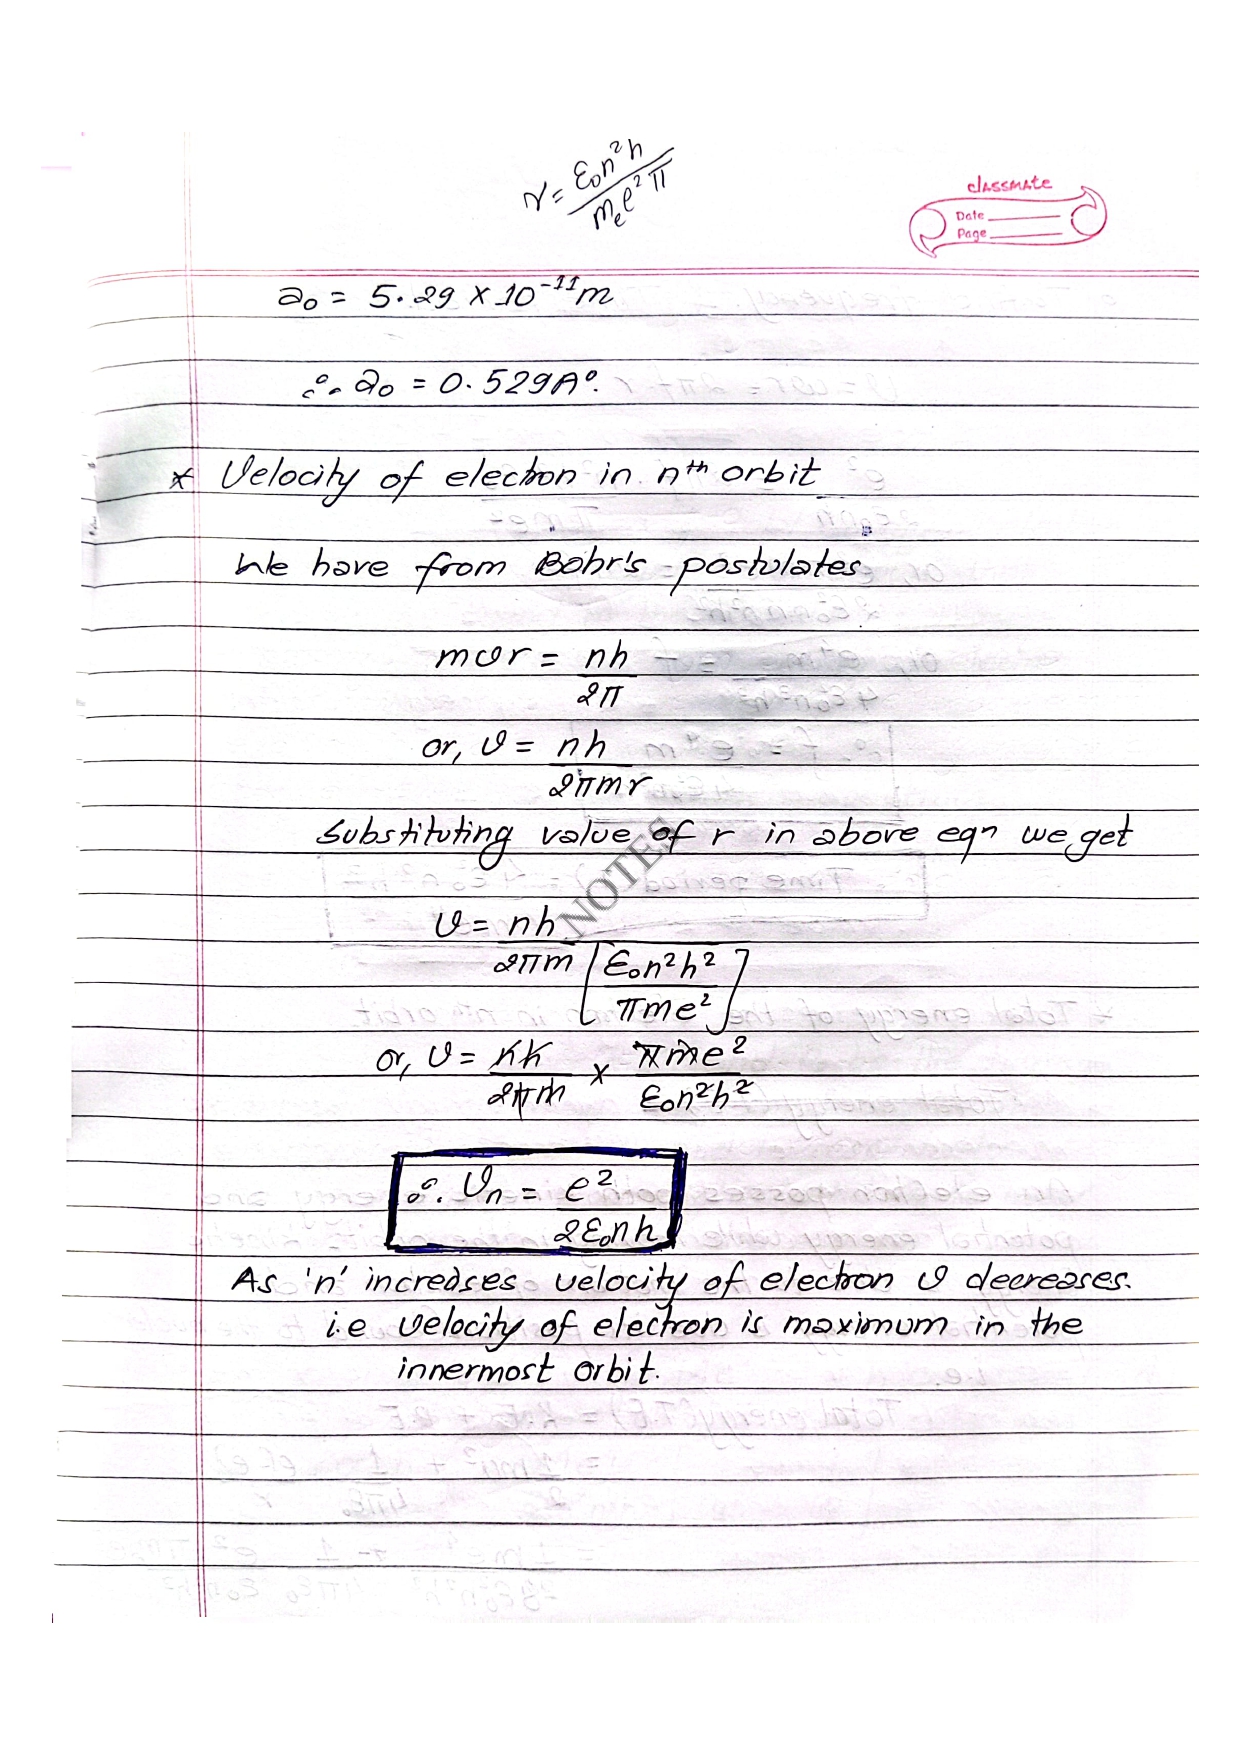 r = ε₀n²h / mₑe²π
classmate
Date
Page
a₀ = 5.29 × 10⁻¹¹m
∴ a₀ = 0.529A°.
* Velocity of electron in nᵗʰ orbit
We have from Bohr's postulates
mvr = nh / 2π
or, v = nh / 2πmr
Substituting value of r in above eqⁿ we get
v = nh / 2πm [ε₀n²h² / πme²]
or, v = nh / 2πm × πme² / ε₀n²h²
∴ vₙ = e² / 2ε₀nh
As 'n' increases velocity of electron v decreases.
i.e velocity of electron is maximum in the
innermost orbit.
NOTES